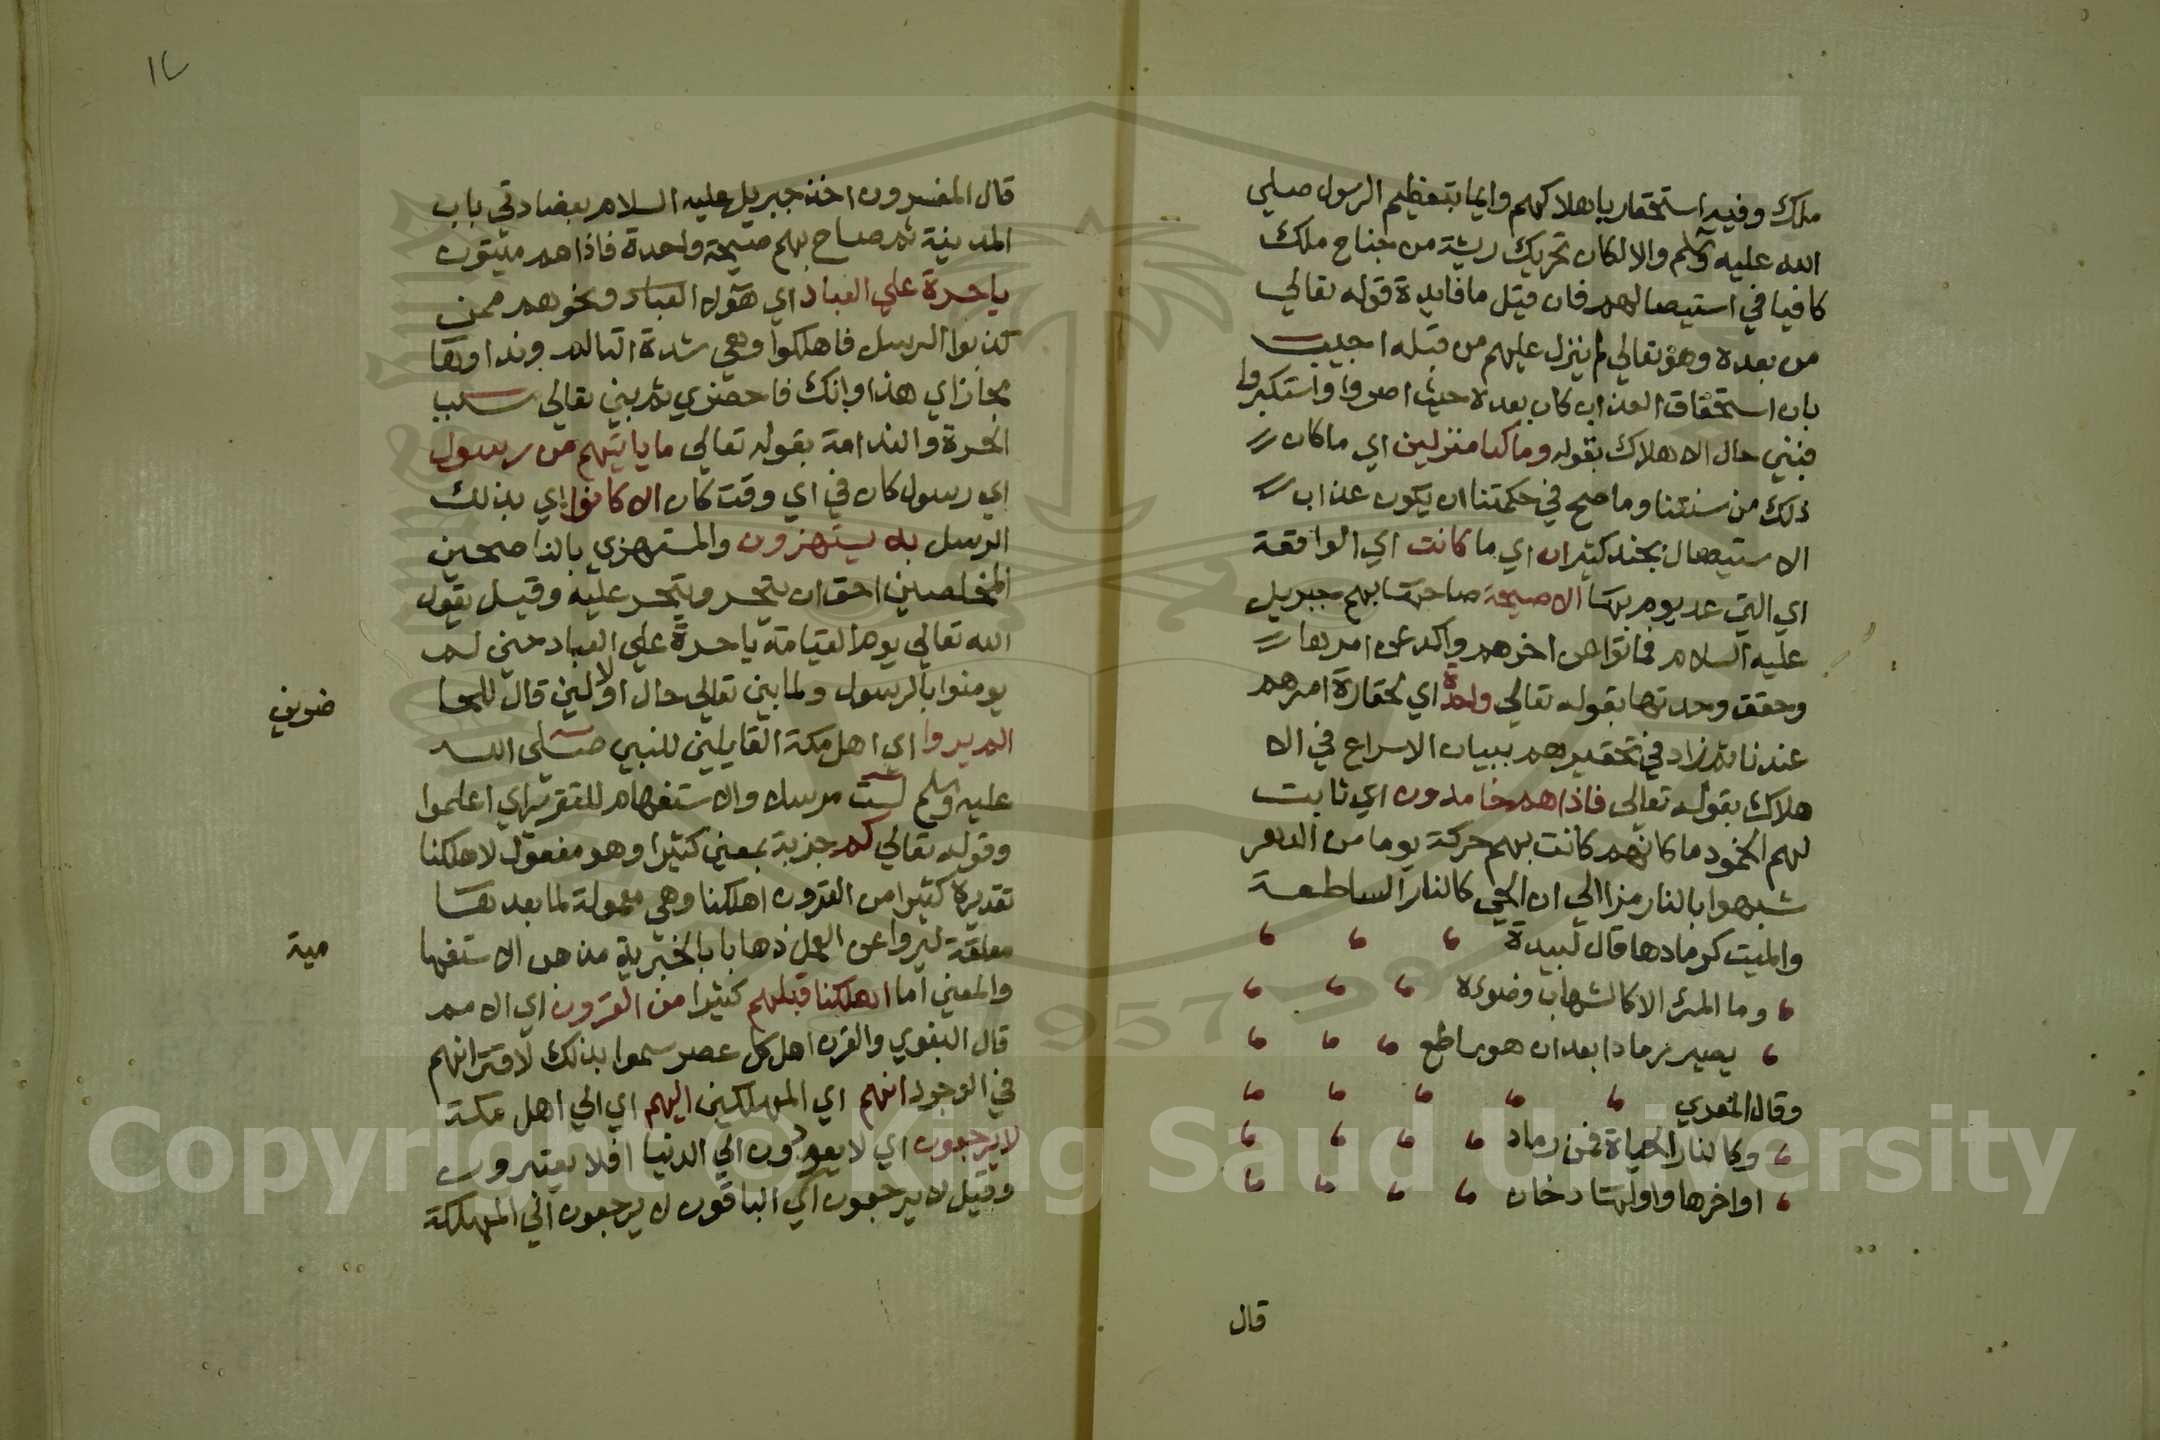 ملك وفيه استحقار باهلاكهم وايما بتعظيم الرسول صلي
الله عليه وسلم والا لكان تحريك ريشة من جناح ملك
كافيا في استيصالهم فان قيل ما فايدة قوله تعالي
من بعده وهو تعالي لم ينزل عليهم من قبله اجيب
بان استحقاق العذاب كان بعده حيث اصروا واستكبروا
فبني حال الاهلاك بقوله وما كنا منزلين اي ما كان
ذلك من سنتنا وما صح في حكمتنا ان يكون عذاب
الاستيصال بجند كثير ان اي ما كانت اي الواقعة
اي التي عديوم بها الا صيحة صاحها بهم جبريل
عليه السلام فماتوا عن اخرهم واكد امرها
وحقق وحدتها بقوله تعالي واحدة اي لحقارة امرهم
عندنا ثم زاد في تحقيرهم ببيان الاسراع في الا
هلاك بقوله تعالي فاذاهم خامدون اي ثابت
لهم الخمود ما كانهم كانت بهم حركة يوما من الدهر
شبهوا بالنار رمزا الي ان الحي كالنار الساطعة
والميت كرمادها قال لبيدة
وما المرء الا كالشهاب وضوءه
يصير رمادا بعد ان هو ساطع
وقال المعري
وكالنار الحياة فمن رماد
اواخرها واولها دخان
قال
١٢
قال المفسرون اخذ جبريل عليه السلام بعضادتي باب
المدينة ثم صاح بهم صيحة واحدة فاذاهم ميتون
ياحسرة علي العباد اي هؤلاء العباد ونحوهم ممن
كذبوا الرسل فاهلكوا وهي شدة التالم ونداوها
مجاز اي هذا اوانك فاحضري ثم بين تعالي سبب
الحسرة والندامة بقوله تعالي ما ياتيهم من رسول
اي رسول كان في اي وقت كان الا كانوا اي بذلك
الرسل به يستهزون والمستهزي بالناصحين
المخلصين احق ان يتحسر ويتحسر عليه وقيل يقول
الله تعالي يوم القيامة ياحسرة علي العباد حين لم
يومنوا بالرسول ولما بين تعالي حال الاولين قال للحا
ضرين
الم يروا اي اهل مكة القايلين للنبي صلي الله
عليه وسلم لست مرسلا والاستفهام للتقرير اي اعلموا
وقوله تعالي كم جزية بمعني كثيرا وهو مفعول لاهلكنا
تقديره كثيرا من القرون اهلكنا وهي معمولة لما بعدها
معلقة ليروا عن العمل ذهابا بالخبرية مذهب الاستفها
مية
والمعني اما اهلكنا قبلهم كثيرا من القرون اي الامم
قال البغوي والقرن اهل كل عصر سموا بذلك لاقترانهم
في الوجود انهم اي المهلكين اليهم اي الي اهل مكة
لا يرجعون اي لا يعودون الي الدنيا افلا يعتبرون
وقيل لا يرجعون اي الباقون لا يرجعون الي المهلكة
Copyright © King Saud University
1957